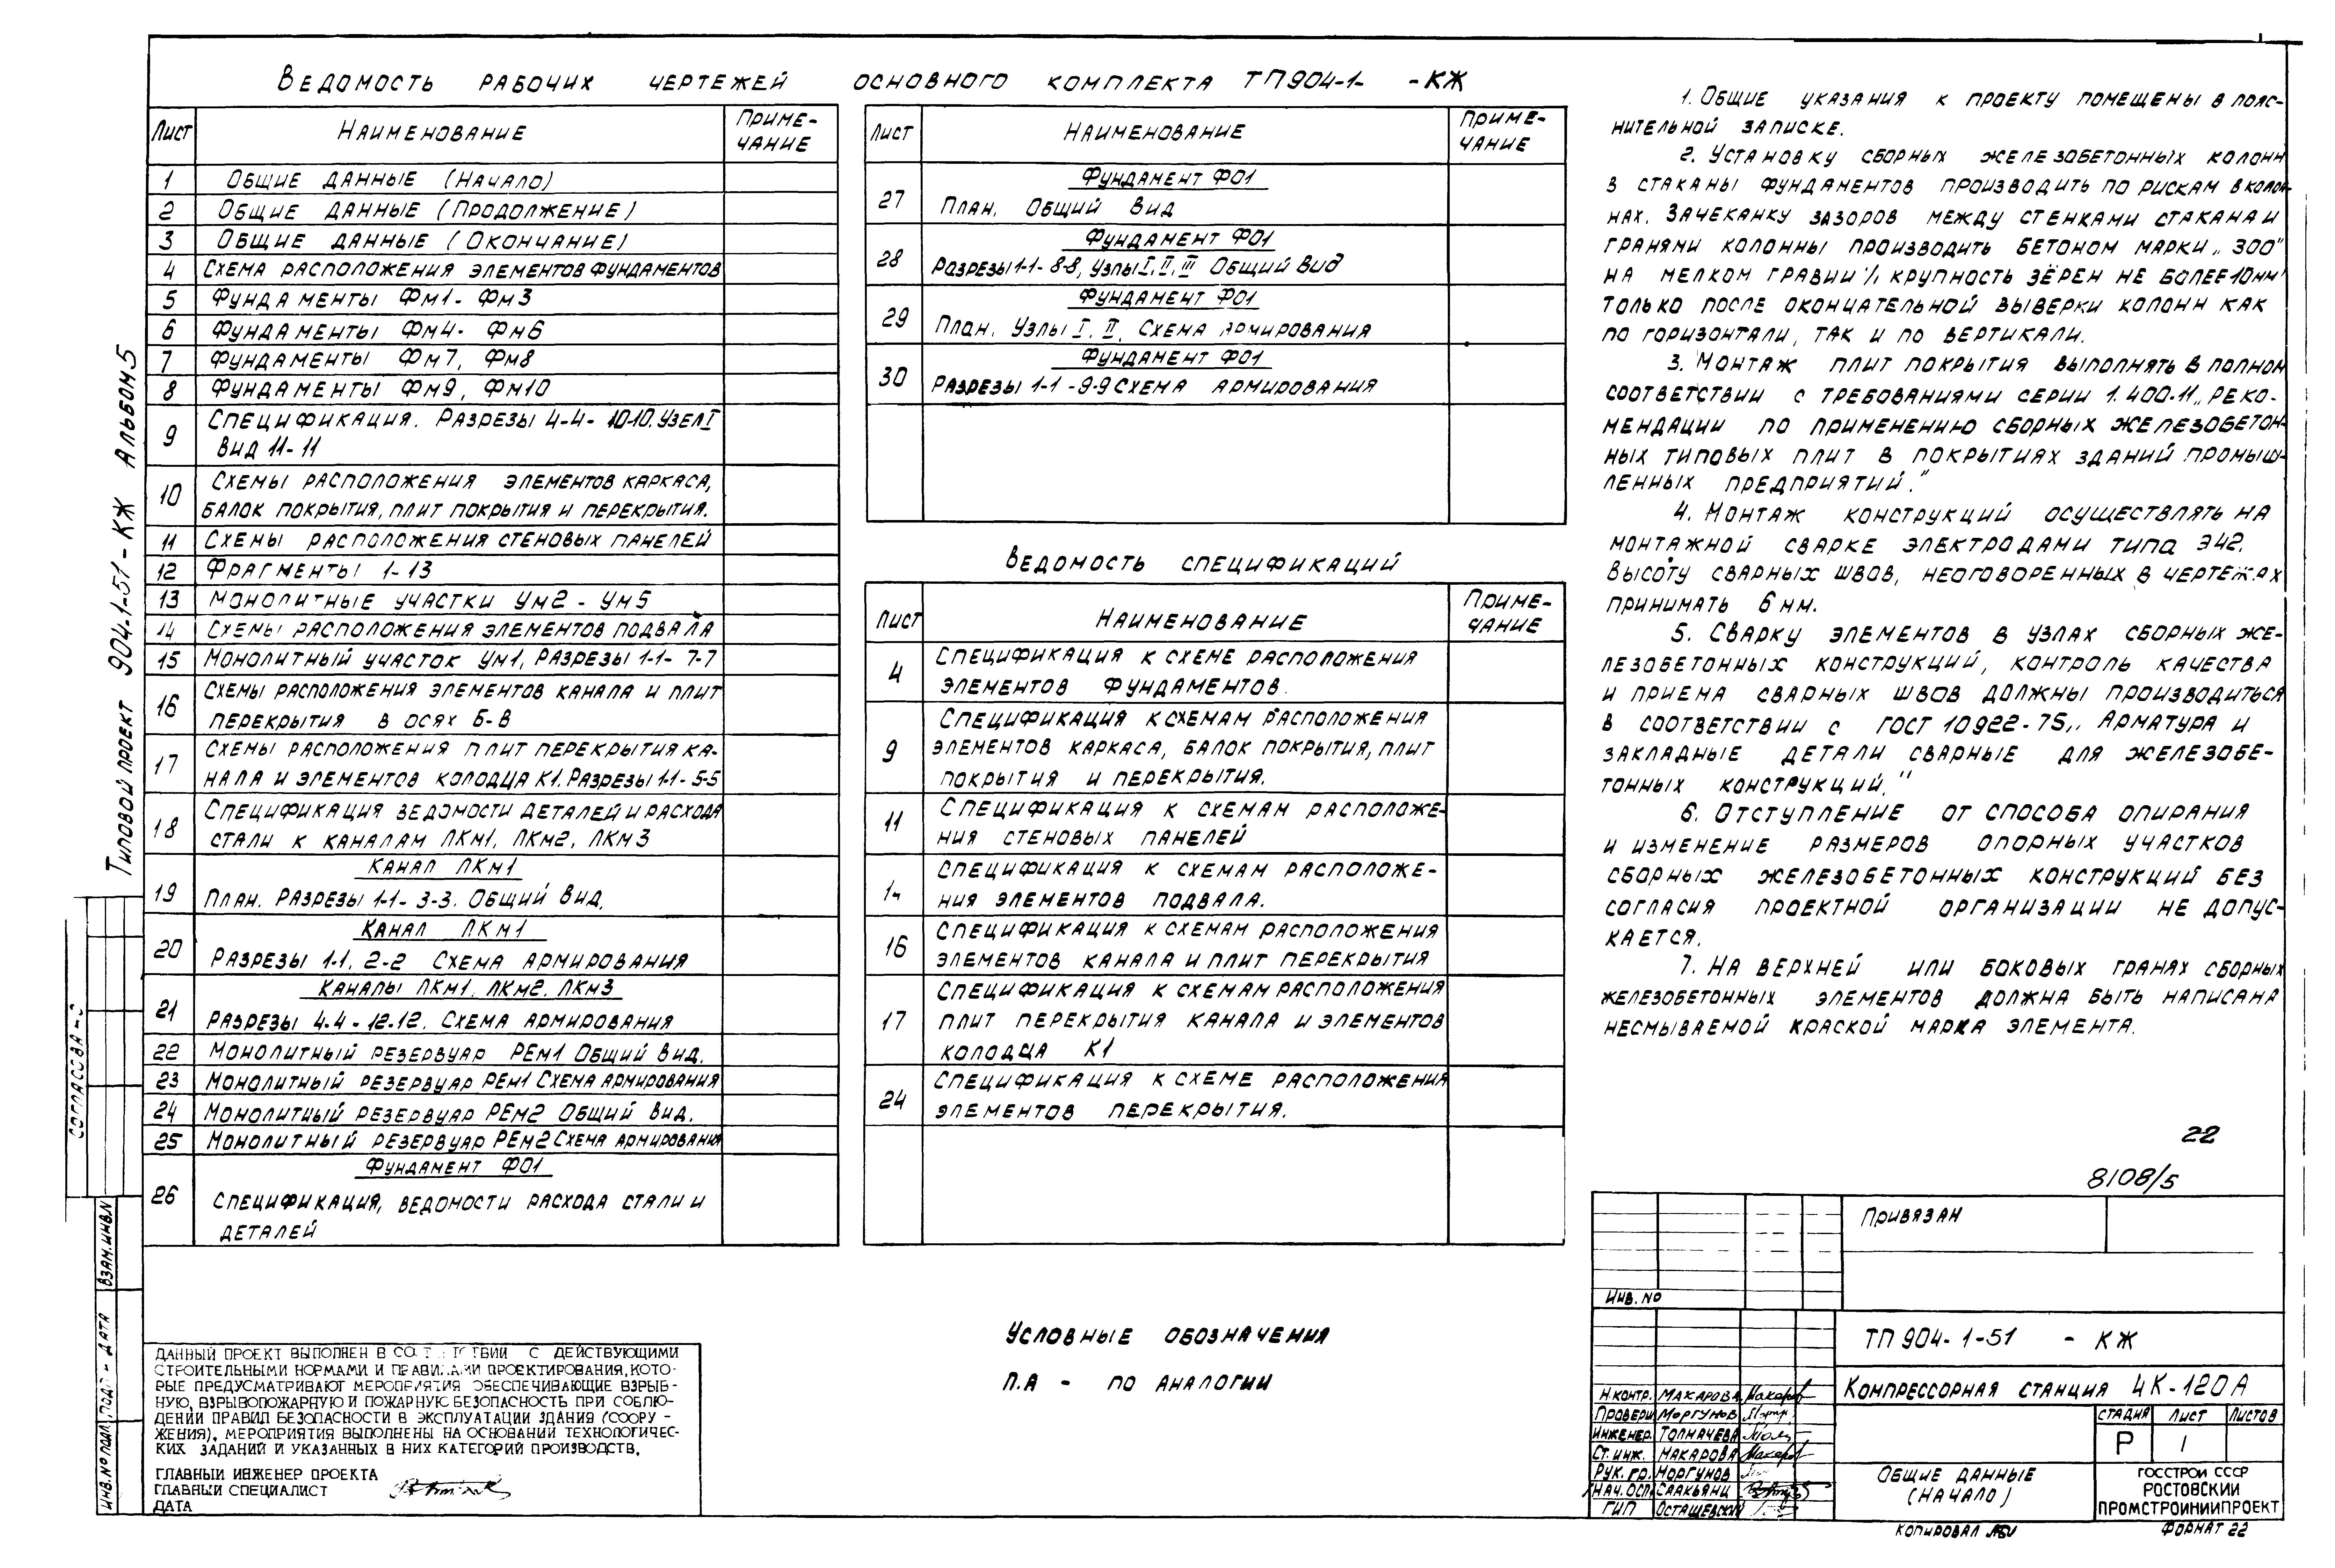 Ведомость рабочих чертежей основного комплекта ТП904-1- -КЖ
Лист Наименование Приме-
чание
1 Общие данные (Начало)
2 Общие данные (Продолжение)
3 Общие данные (Окончание)
4 Схема расположения элементов фундаментов
5 Фундаменты Фм1- Фм3
6 Фундаменты Фм4- Фм6
7 Фундаменты Фм7, Фм8
8 Фундаменты Фм9, Фм10
9 Спецификация. Разрезы 4-4- 10-10. Узел I
Вид 11-11
10 Схемы расположения элементов каркаса,
балок покрытия, плит покрытия и перекрытия.
11 Схемы расположения стеновых панелей
12 Фрагменты 1-13
13 Монолитные участки Ум2 - Ум5
14 Схемы расположения элементов подвала
15 Монолитный участок Ум1, Разрезы 1-1- 7-7
16 Схемы расположения элементов канала и плит
перекрытия в осях Б-В
17 Схемы расположения плит перекрытия ка-
нала и элементов колодца К1. Разрезы 1-1- 5-5
18 Спецификация ведомости деталей и расхода
стали к каналам ЛКм1, ЛКм2, ЛКм3
Канал ЛКм1
19 План. Разрезы 1-1- 3-3. Общий вид.
Канал ЛКм1
20 Разрезы 1-1, 2-2 Схема армирования
Каналы ЛКм1, ЛКм2, ЛКм3
21 Разрезы 4-4 - 12-12. Схема армирования
22 Монолитный резервуар РЕм1 Общий вид.
23 Монолитный резервуар РЕм1 Схема армирования
24 Монолитный резервуар РЕм2 Общий вид.
25 Монолитный резервуар РЕм2 Схема армирования
Фундамент ФО1
26 Спецификация, ведомости расхода стали и
деталей
Лист Наименование Приме-
чание
Фундамент ФО1
27 План. Общий вид
Фундамент ФО1
28 Разрезы 1-1- 8-8, Узлы I, II, III Общий вид
Фундамент ФО1
29 План. Узлы I, II, Схема армирования
Фундамент ФО1
30 Разрезы 1-1 -9-9 Схема армирования
Ведомость спецификаций
Лист Наименование Приме-
чание
4 Спецификация к схеме расположения
элементов фундаментов.
9 Спецификация к схемам расположения
элементов каркаса, балок покрытия, плит
покрытия и перекрытия.
11 Спецификация к схемам расположе-
ния стеновых панелей
14 Спецификация к схемам расположе-
ния элементов подвала.
16 Спецификация к схемам расположения
элементов канала и плит перекрытия
17 Спецификация к схемам расположения
плит перекрытия канала и элементов
колодца К1
24 Спецификация к схеме расположения
элементов перекрытия.
Условные обозначения
П.А - по аналогии
1. Общие указания к проекту помещены в пояс-
нительной записке.
2. Установку сборных железобетонных колонн
в стаканы фундаментов производить по рискам в колон-
нах. Зачеканку зазоров между стенками стакана и
гранями колонны производить бетоном марки „300"
на мелком гравии /крупность зёрен не более 10мм/
только после окончательной выверки колонн как
по горизонтали, так и по вертикали.
3. Монтаж плит покрытия выполнять в полном
соответствии с требованиями серии 1.400-11 „Реко-
мендации по применению сборных железобетон-
ных типовых плит в покрытиях зданий промыш-
ленных предприятий."
4. Монтаж конструкций осуществлять на
монтажной сварке электродами типа Э42.
Высоту сварных швов, неоговоренных в чертежах
принимать 6 мм.
5. Сварку элементов в узлах сборных же-
лезобетонных конструкций, контроль качества
и приема сварных швов должны производиться
в соответствии с ГОСТ 10922-75 „Арматура и
закладные детали сварные для железобе-
тонных конструкций."
6. Отступление от способа опирания
и изменение размеров опорных участков
сборных железобетонных конструкций без
согласия проектной организации не допус-
кается.
7. На верхней или боковых гранях сборных
железобетонных элементов должна быть написана
несмываемой краской марка элемента.
22
8108/5
Привязан
Инв. №
ТП 904-1-51 - КЖ
Компрессорная станция 4К-120А
Стадия Лист Листов
Р 1
Общие данные
(Начало)
Госстрой СССР
Ростовский
Промстройниипроект
Н.контр. Макарова
Провери Моргунов
Инженер. Толмачева
Ст. инж. Макарова
Рук. гр. Моргунов
Нач. ОСП Саакьянц
ГИП Осташевский
Копировал
Формат 22
Данный проект выполнен в с действующими
строительными нормами и правилами проектирования, кото-
рые предусматривают мероприятия обеспечивающие взрыв-
ную, взрывопожарную и пожарную безопасность при соблю-
дении правил безопасности в эксплуатации здания (соору-
жения). Мероприятия выполнены на основании технологичес-
ких заданий и указанных в них категорий производств.
Главный инженер проекта
Главный специалист
Дата
Типовой проект 904-1-51-КЖ Альбом 5
Взам.инв.N
Инв.№ подл.